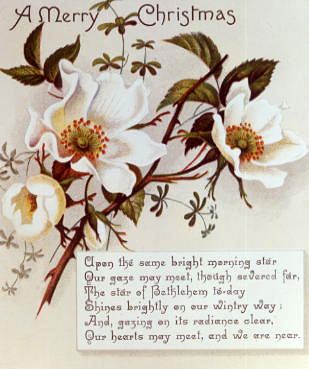 A Merry Christmas
Upon the same bright morning star
Our gaze may meet, though severed far,
The star of Bethlehem to-day
Shines brightly on our wintry way;
And, gazing on its radiance clear,
Our hearts may meet, and we are near.